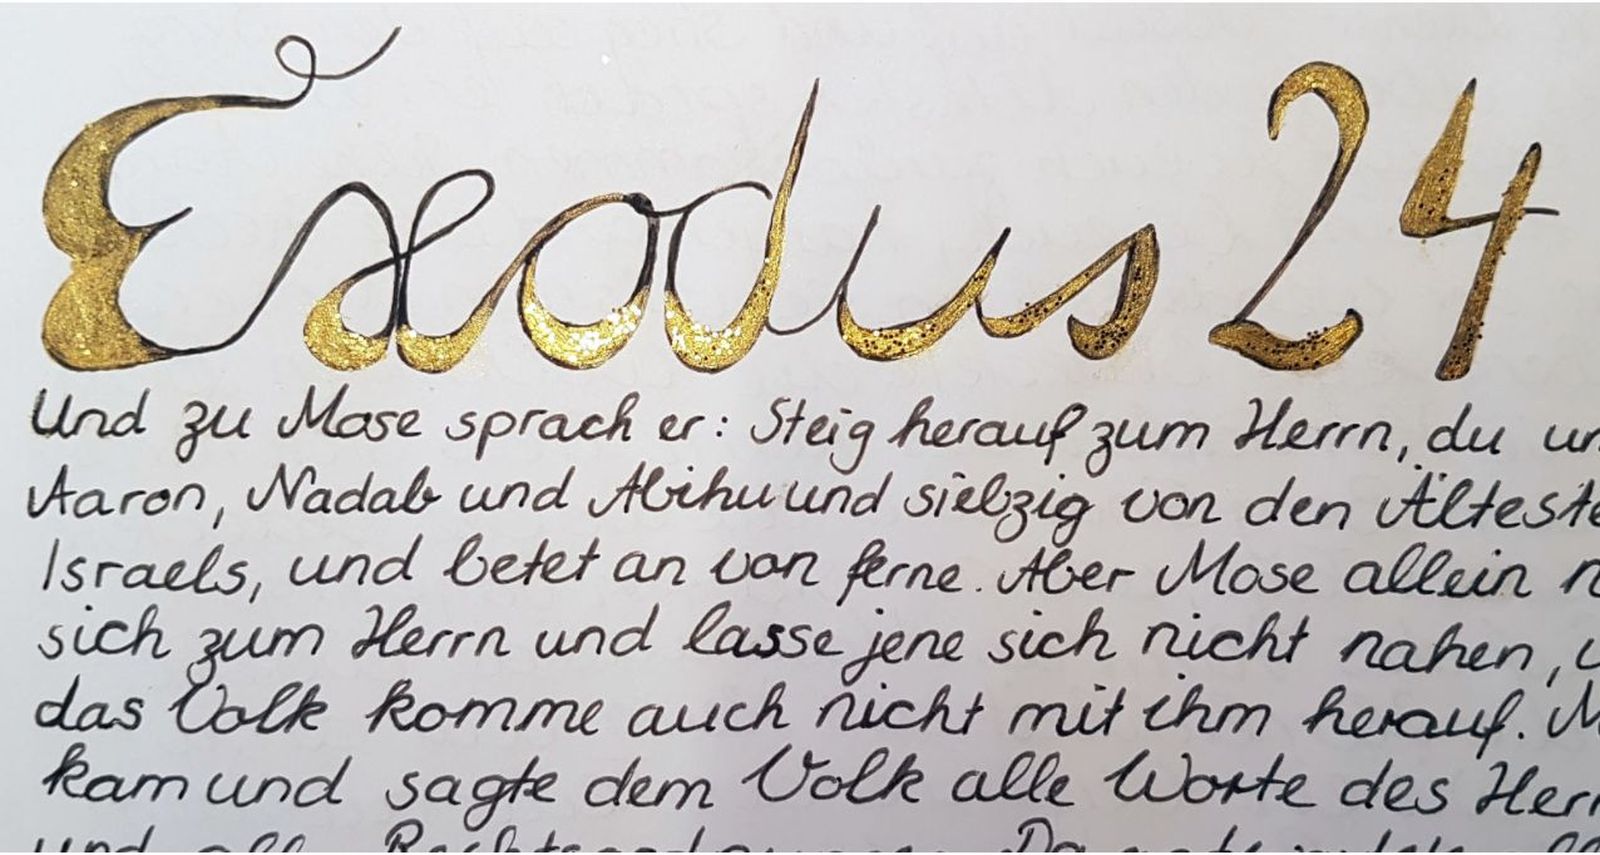 Exodus 24
Und zu Mose sprach er: Steig herauf zum Herrn, du
Aaron, Nadab und Abihu und siebzig von den Älteste
Israels, und betet an von ferne. Aber Mose allein
sich zum Herrn und lasse jene sich nicht nahen,
das Volk komme auch nicht mit ihm herauf.
kam und sagte dem Volk alle Worte des Herr
und all